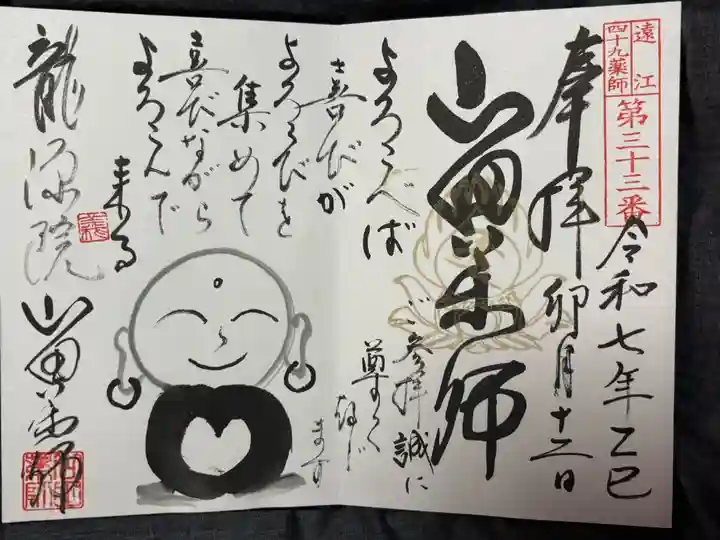 遠江
四十九薬師
第三十三番
令和七年乙巳
卯月十二日
奉拝
山田薬師
ご参拝誠に
尊く存じ
ます
よろこべば
喜びが
よろこびを
集めて
喜びながら
よろこんで
来る
龍源院
山田薬師